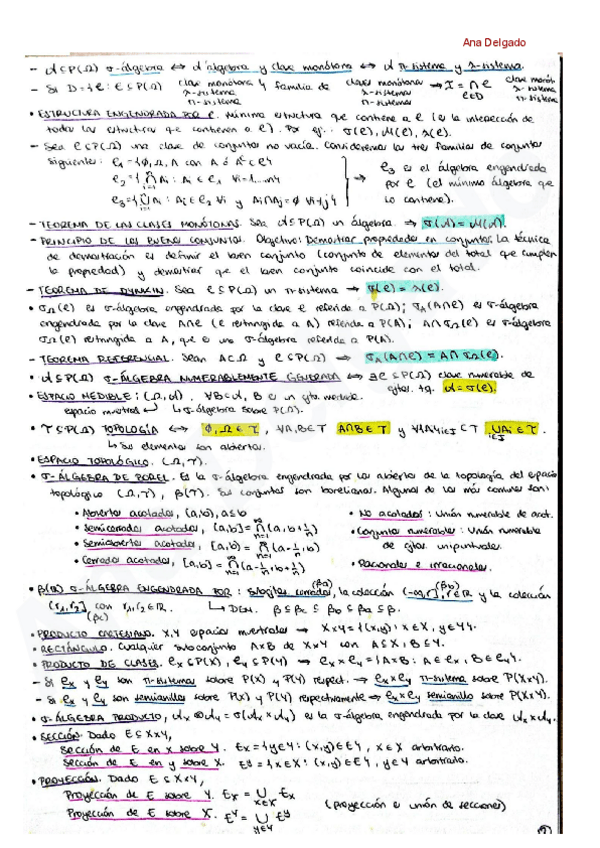 Ana Delgado
- 𝒜⊆P(Ω) σ-álgebra ⟺ 𝒜 álgebra y clase monótona ⟺ 𝒜 π-sistema y λ-sistema.
- Si D={𝒞: 𝒞⊆P(Ω) clase monótona, λ-sistema, π-sistema} familia de clases monótonas, λ-sistemas, π-sistemas → ℐ = ∩ 𝒞 𝒞∈D clase monót. λ-sistema π-sistema
• ESTRUCTURA ENGENDRADA POR 𝒞. Mínima estructura que contiene a 𝒞 (es la intersección de
todas las estructuras que contienen a 𝒞). Por ej.: σ(𝒞), M(𝒞), λ(𝒞).
- Sea 𝒞⊆P(Ω) una clase de conjuntos no vacía. Consideremos las tres familias de conjuntos
siguiente: 𝒞₁ = {∅, Ω, A con A ó Aᶜ∈𝒞}
𝒞₂ = {∩ᵢ₌₁ⁿ Aᵢ : Aᵢ∈𝒞₁ ∀i=1...n}
𝒞₃ = {∪ᵢ₌₁ⁿ Aᵢ : Aᵢ∈𝒞₂ ∀i y Aᵢ∩Aⱼ=∅ ∀i≠j}
→ 𝒞₃ es el álgebra engendrada
por 𝒞 (el mínimo álgebra que
lo contiene).
- TEOREMA DE LAS CLASES MONÓTONAS. Sea 𝒜⊆P(Ω) un álgebra. ⟹ σ(𝒜) = M(𝒜).
- PRINCIPIO DE LOS BUENOS CONJUNTOS. Objetivo: Demostrar propiedades en conjuntos. La técnica
de demostración es definir el buen conjunto (conjunto de elementos del total que cumplen
la propiedad) y demostrar que el buen conjunto coincide con el total.
- TEOREMA DE DYNKIN. Sea 𝒞⊆P(Ω) un π-sistema ⟹ σ(𝒞) = λ(𝒞).
• σ_Ω(𝒞) es σ-álgebra engendrada por la clase 𝒞 referida a P(Ω); σ_A(A∩𝒞) es σ-álgebra
engendrada por la clase A∩𝒞 (𝒞 restringida a A) referida a P(A); A∩σ_Ω(𝒞) es σ-álgebra
σ_Ω(𝒞) restringida a A, que es una σ-álgebra referida a P(A).
- TEOREMA REFERENCIAL. Sean A⊂Ω y 𝒞⊆P(Ω) ⟹ σ_A(A∩𝒞) = A∩σ_Ω(𝒞).
• 𝒜⊆P(Ω) σ-ÁLGEBRA NUMERABLEMENTE GENERADA ⟺ ∃𝒞⊆P(Ω) clase numerable de
cjtos. t.q. 𝒜=σ(𝒞).
• ESPACIO MEDIBLE: (Ω,𝒜). ∀B∈𝒜, B es un cjto. medible.
espacio muestral ↲ ↳ σ-álgebra sobre P(Ω).
• T⊆P(Ω) TOPOLOGÍA ⟺ ∅,Ω∈T, ∀A,B∈T A∩B∈T y ∀{Aᵢ}ᵢ∈I⊂T ∪ᵢ∈I Aᵢ∈T.
↳ Sus elementos son abiertos.
• ESPACIO TOPOLÓGICO. (Ω,T).
• σ-ÁLGEBRA DE BOREL. Es la σ-álgebra engendrada por los abiertos de la topología del espacio
topológico (Ω,T), β(T). Sus conjuntos son borelianos. Algunos de los más comunes son:
• Abiertos acotados, (a,b), a≤b
• Semicerrados acotados, (a,b] = ∩ₙ₌₁^∞ (a, b+1/n)
• Semiabiertos acotados, [a,b) = ∩ₙ₌₁^∞ (a-1/n, b)
• Cerrados acotados, [a,b] = ∩ₙ₌₁^∞ (a-1/n, b+1/n)
• No acotados: Unión numerable de acot.
• Conjuntos numerables: Unión numerable
de cjtos. unipuntuales.
• Racionales e irracionales.
• β(ℝ) σ-ÁLGEBRA ENGENDRADA POR: subcjtos cerrados (βa), la colección (-∞,r], r∈ℝ (βb) y la colección
(r₁,r₂], con r₁,r₂∈ℝ. (βc) ↳ DEM. β⊆βc⊆βb⊆βa⊆β.
• PRODUCTO CARTESIANO. X,Y espacios muestrales ⟹ X×Y={(x,y): x∈X, y∈Y}.
• RECTÁNGULO. Cualquier subconjunto A×B de X×Y con A⊆X, B⊆Y.
• PRODUCTO DE CLASES. 𝒞x⊆P(X), 𝒞y⊆P(Y) ⟹ 𝒞x×𝒞y={A×B: A∈𝒞x, B∈𝒞y}.
- Si 𝒞x y 𝒞y son π-sistemas sobre P(X) y P(Y) respect. ⟹ 𝒞x×𝒞y π-sistema sobre P(X×Y).
- Si 𝒞x y 𝒞y son semianillos sobre P(X) y P(Y) respectivamente ⟹ 𝒞x×𝒞y semianillo sobre P(X×Y).
• σ-ÁLGEBRA PRODUCTO, 𝒜x⊗𝒜y = σ(𝒜x×𝒜y) es la σ-álgebra engendrada por la clase 𝒜x×𝒜y.
• SECCIÓN. Dado E⊆X×Y,
Sección de E en x sobre Y. Eₓ={y∈Y: (x,y)∈E}, x∈X arbitrario.
Sección de E en y sobre X. Eʸ={x∈X: (x,y)∈E}, y∈Y arbitrario.
• PROYECCIÓN. Dado E⊆X×Y,
Proyección de E sobre Y. E_X = ∪ₓ∈X Eₓ
Proyección de E sobre X. E^Y = ∪y∈Y Eʸ
(proyección es unión de secciones)